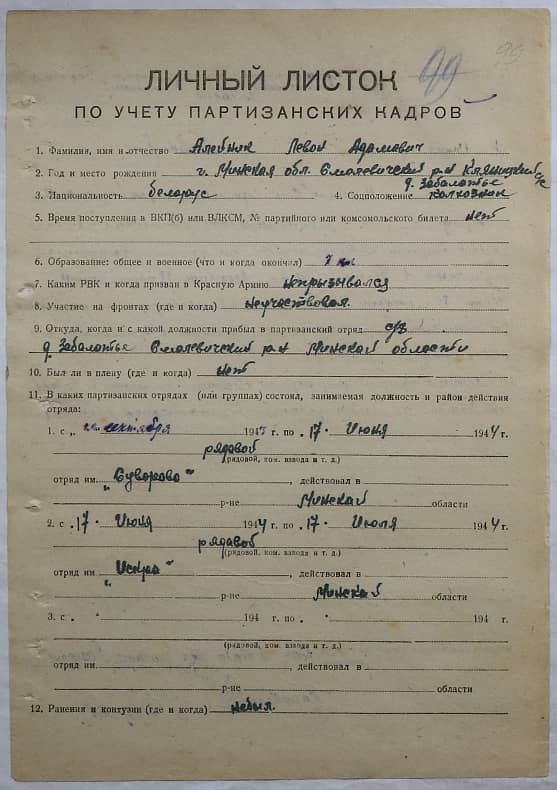 99
99
ЛИЧНЫЙ ЛИСТОК
ПО УЧЕТУ ПАРТИЗАНСКИХ КАДРОВ
1. Фамилия, имя и отчество Алейник Левон Адамович
2. Год и место рождения Минская обл. Смолевичский р-н с/с
д. Заболотье
3. Национальность беларус 4. Соцположение колхозник
5. Время поступления в ВКП(б) или ВЛКСМ, № партийного или комсомольского билета нет
6. Образование: общее и военное (что и когда окончил) 7 кл
7. Каким РВК и когда призван в Красную Армию непрызывался
8. Участие на фронтах (где и когда) неучаствовал
9. Откуда, когда и с какой должности прибыл в партизанский отряд
д. Забалотье Смолевичский р-н Минской области
10. Был ли в плену (где и когда) нет
11. В каких партизанских отрядах (или группах) состоял, занимаемая должность и район действия
отряда:
1. с „ сентября 194 г. по „17" Июня 1944 г.
рядовой
(рядовой, ком. взвода и т. д.)
отряд им „Суворова", действовал в
р-не Минской области
2. с „17" Июня 1944 г. по „17" Июля 1944 г.
рядавой
(рядовой, ком. взвода и т. д.)
отряд им „Искра", действовал в
р-не Минской области
3. с „ " 194 г. по „ " 194 г.
(рядовой, ком. взвода и т. д.)
отряд им. , действовал в
р-не области
12. Ранения и контузии (где и когда) небыл.